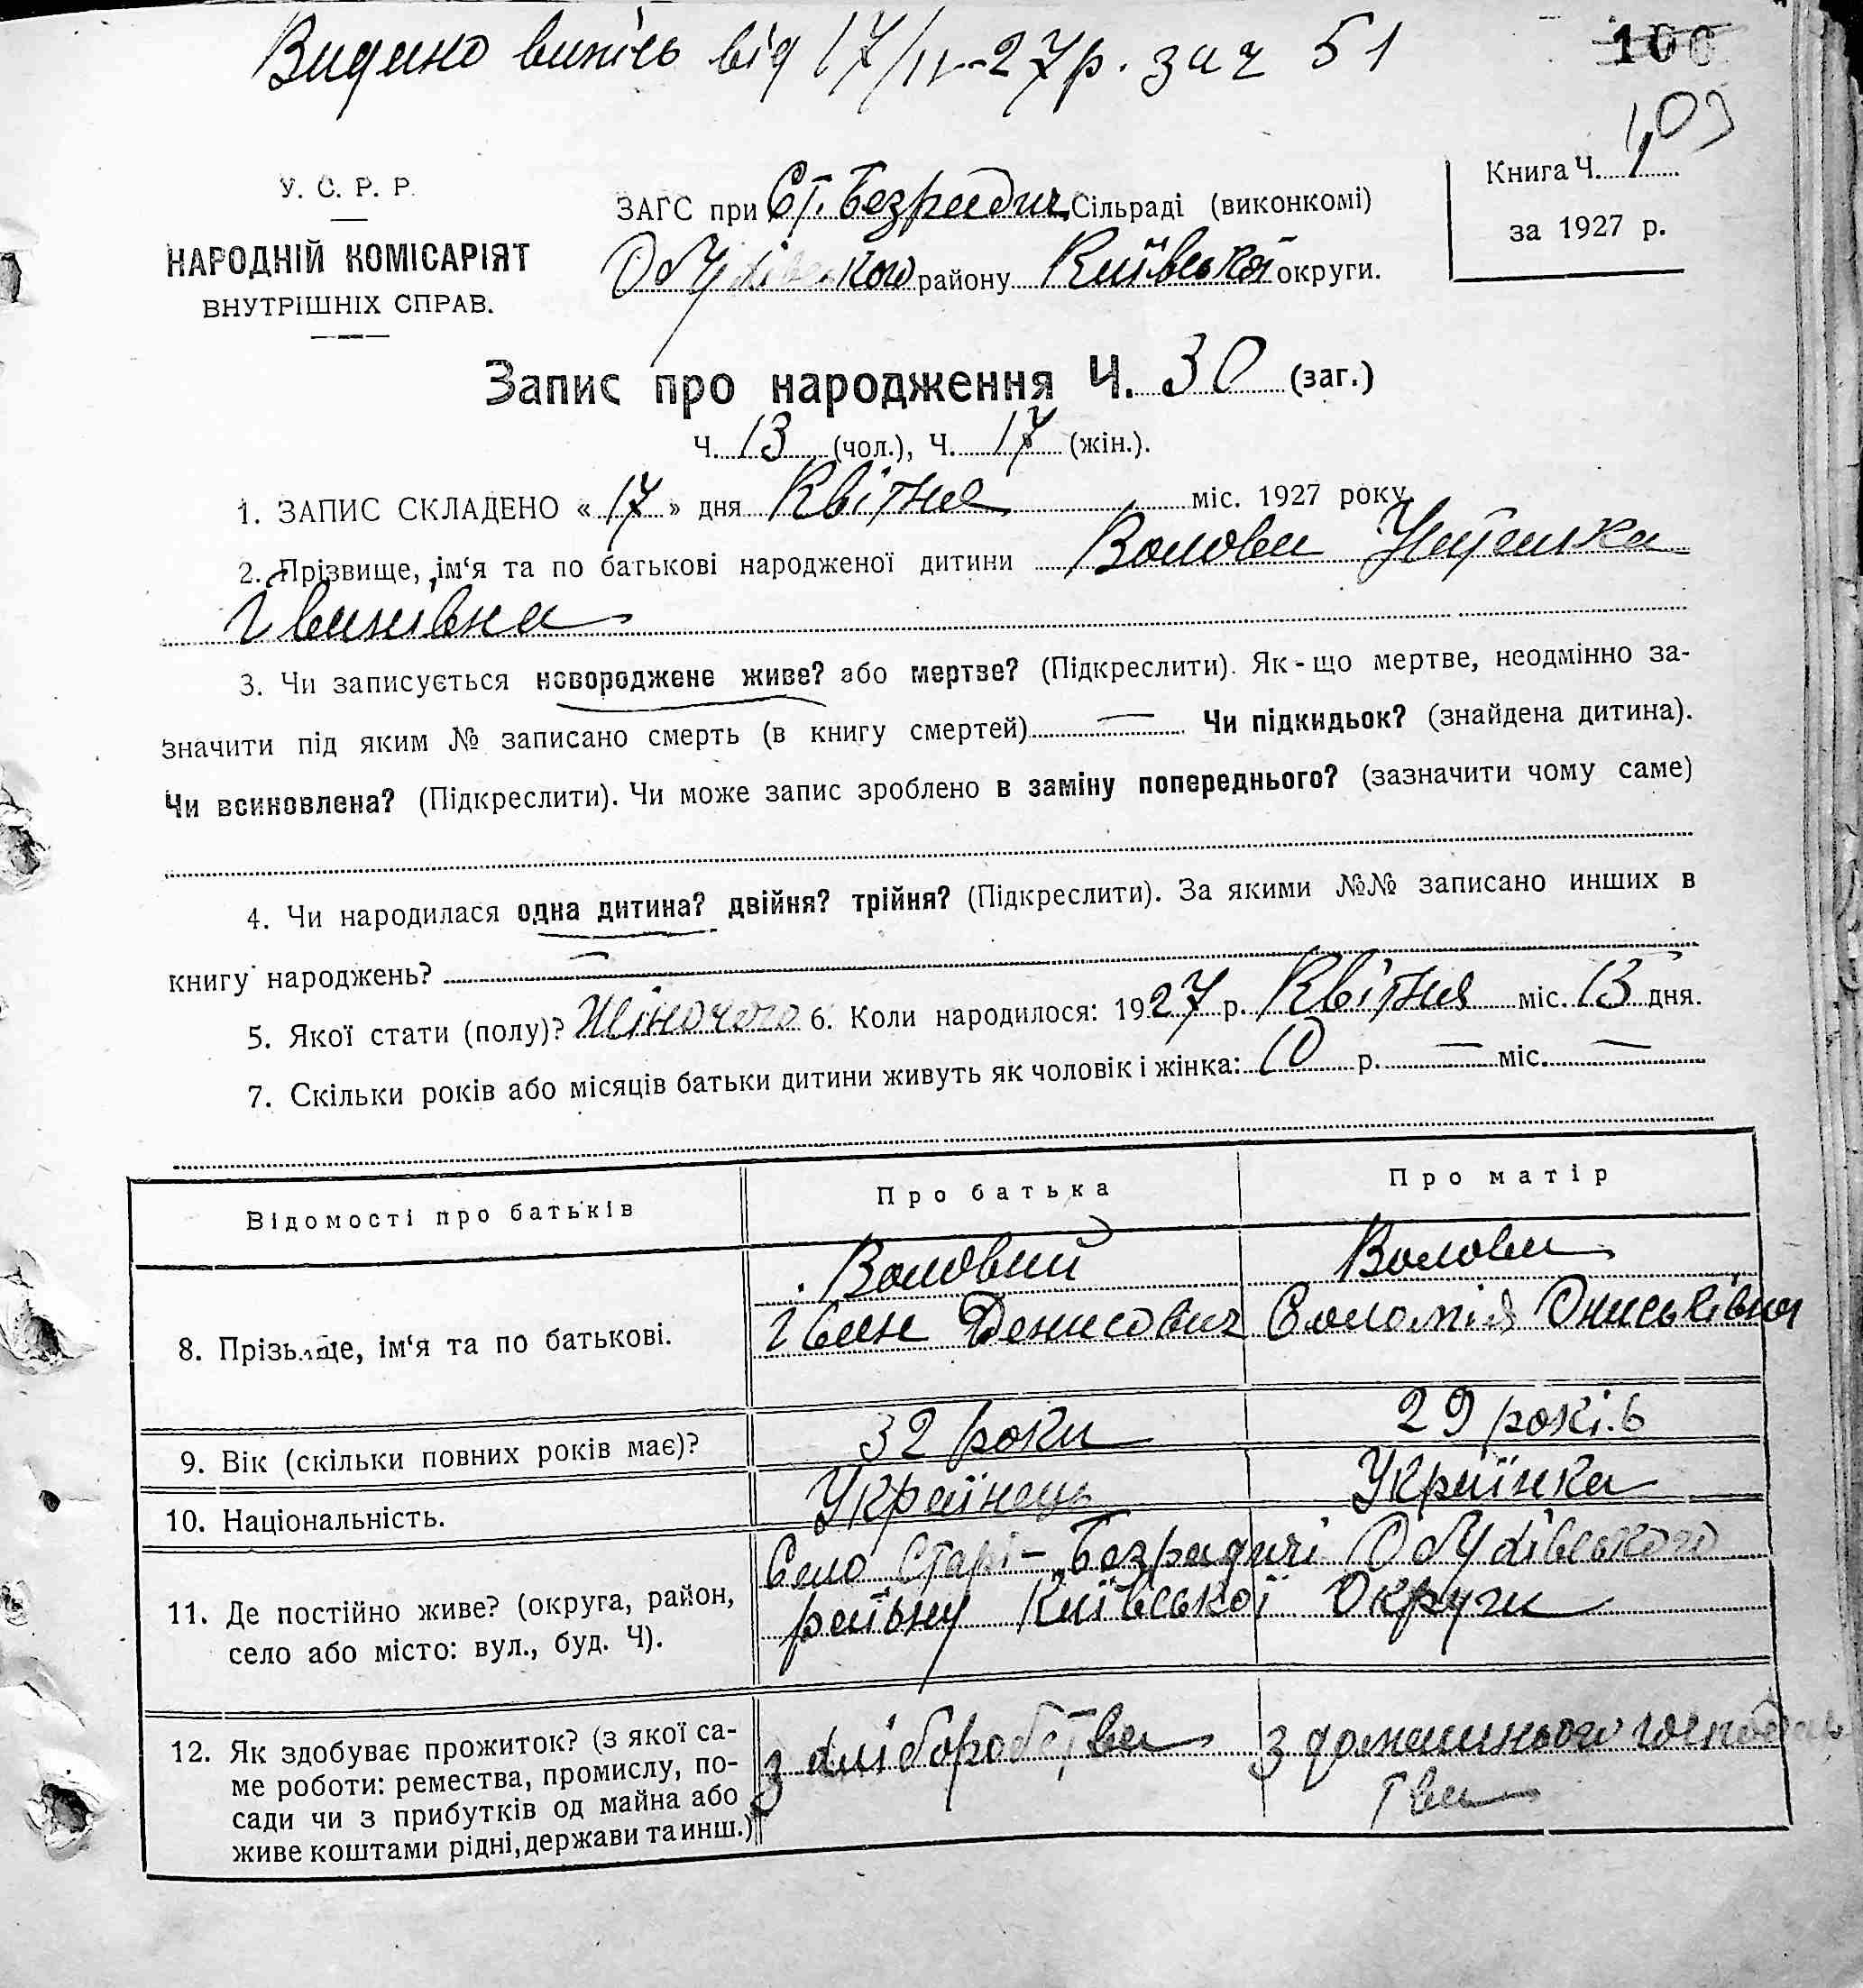 Видано випись від 17/IV-27р. за ч 51
100
103
У. С. Р. Р.
НАРОДНІЙ КОМІСАРІЯТ
ВНУТРІШНІХ СПРАВ.
ЗАГС при Ст. Безрадич. Сільраді (виконкомі)
Обухівського району Київської округи.
Книга Ч. 1
за 1927 р.
Запис про народження Ч. 30 (заг.)
Ч. 13 (чол.), Ч. 17 (жін.).
1. ЗАПИС СКЛАДЕНО « 17 » дня Квітня міс. 1927 року.
2. Прізвище, ім‘я та по батькові народженої дитини Волова Наталка
Іванівна
3. Чи записується новороджене живе? або мертве? (Підкреслити). Як-що мертве, неодмінно за-
значити під яким № записано смерть (в книгу смертей) — Чи підкидьок? (знайдена дитина).
Чи всиновлена? (Підкреслити). Чи може запис зроблено в заміну попереднього? (зазначити чому саме)
4. Чи народилася одна дитина? двійня? трійня? (Підкреслити). За якими №№ записано инших в
книгу народжень? —
5. Якої стати (полу)? Жіночого 6. Коли народилося: 1927 р. Квітня міс. 13 дня.
7. Скільки років або місяців батьки дитини живуть як чоловік і жінка: 10 р. — міс. —
Відомості про батьків
Про батька
Про матір
8. Прізвище, ім‘я та по батькові.
Воловий
Іван Денисович
Волова
Соломія Ониськівна
9. Вік (скільки повних років має)?
32 роки
29 років
10. Національність.
Українець
Українка
11. Де постійно живе? (округа, район,
село або місто: вул., буд. Ч).
Село Старі-Безрадичі Обухівського
району Київської Округи
12. Як здобуває прожиток? (з якої са-
ме роботи: ремества, промислу, по-
сади чи з прибутків од майна або
живе коштами рідні, держави та инш.)
з хліборобства
з домашнього господарс
тва